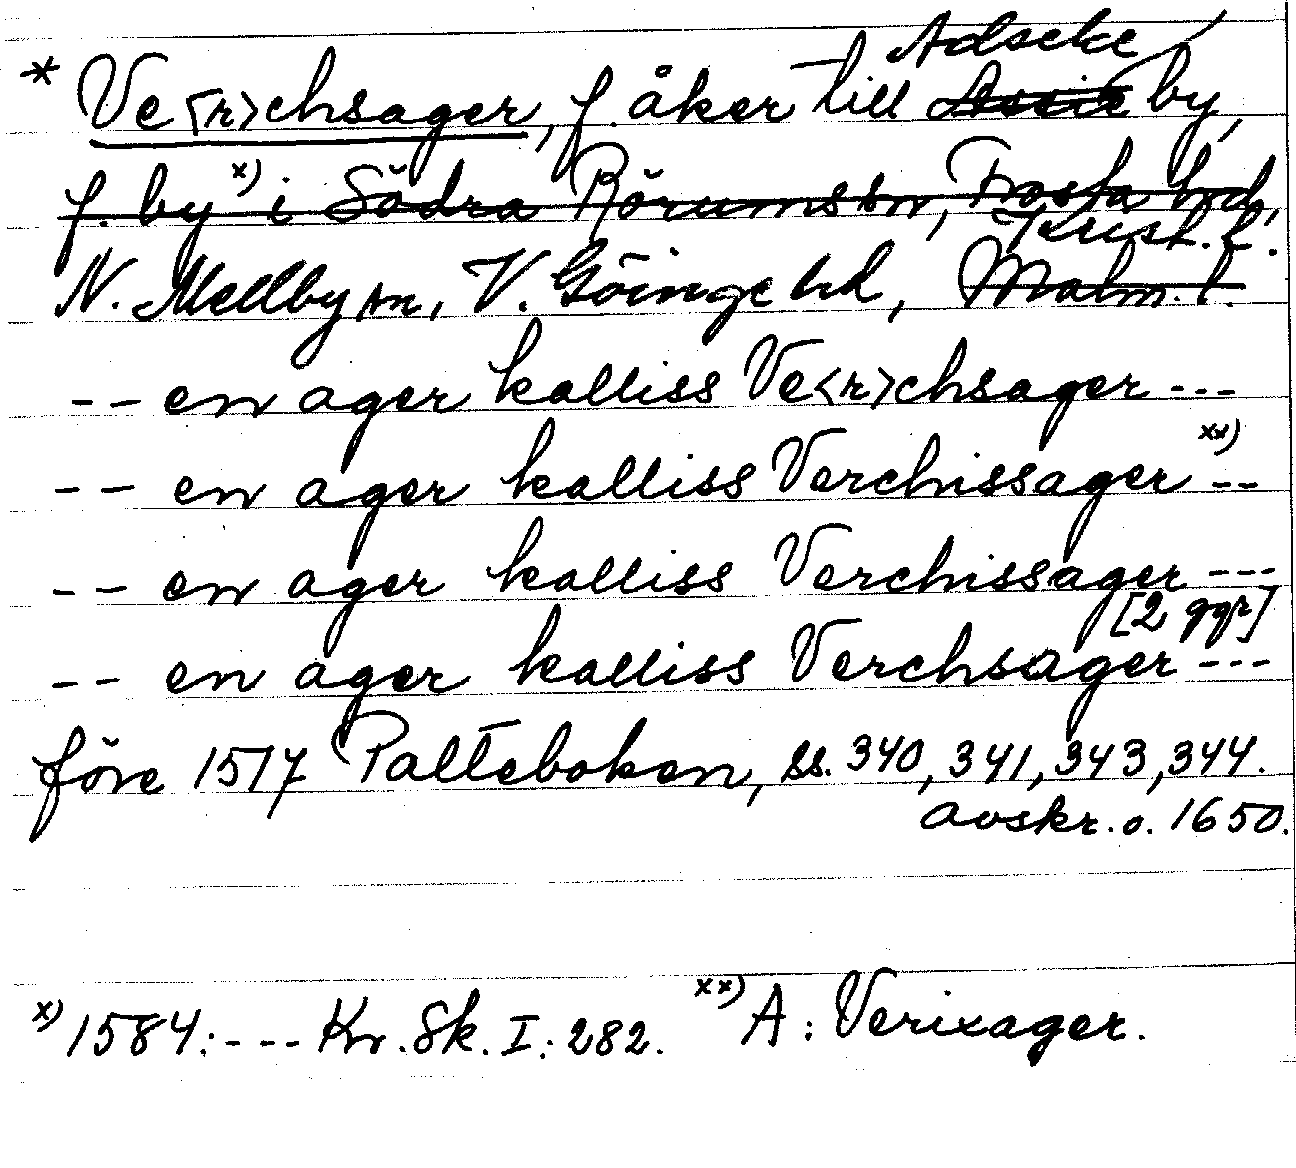 Adseke
* Ve<r>chsager, f. åker till by,
f. by x) i Södra Rörums sn, Frosta hd,
Krist. l.
N. Mellby sn, V. Göinge hd, Malm. l.
-- en ager kalliss Ve<r>chsager ---
-- en ager kalliss Verchissager xx) --
-- en ager kalliss Verchissager ---
[2 ggr]
-- en ager kalliss Verchsager ---
före 1517 Palteboken, ss. 340, 341, 343, 344.
avskr. o. 1650.
x) 1584: --- Kr. Sk. I: 282. xx) A: Verixager.